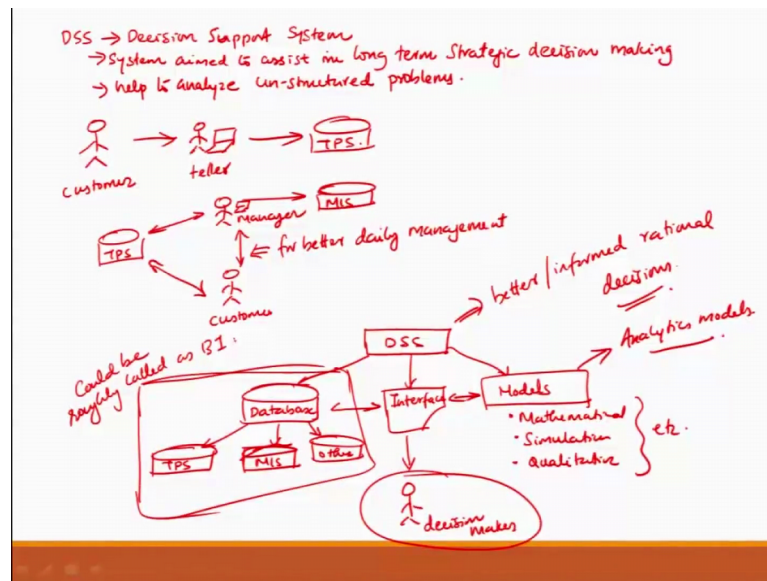 DSS → Decision Support System
→ System aimed to assist in long term Strategic decision making
→ help to analyze un-structured problems.
customer
teller
TPS.
manager
MIS
TPS
⇐ for better daily management
customer
better/informed rational
decisions.
Could be
roughly called as BI.
DSS
Analytics models.
Database
Interface
Models
• Mathematical
• Simulation
- Qualitative
etc.
TPS
MIS
others
decision
maker